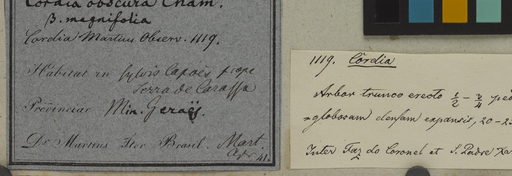 Cordia obscura Cham.
β. magnifolia
Cordia Martius Observ. 1119.
Habitat in sylvis Capoës, prope
Serra de Caraffa
Provinciae Min. Geraës.
Dr Martius Iter Brasil. Mart.
41.
1119. Cordia
Arbor trunco erecto ½ - ¾
globosam densam expansis, 20-2
Inter Faz do Coronel et S. Padre